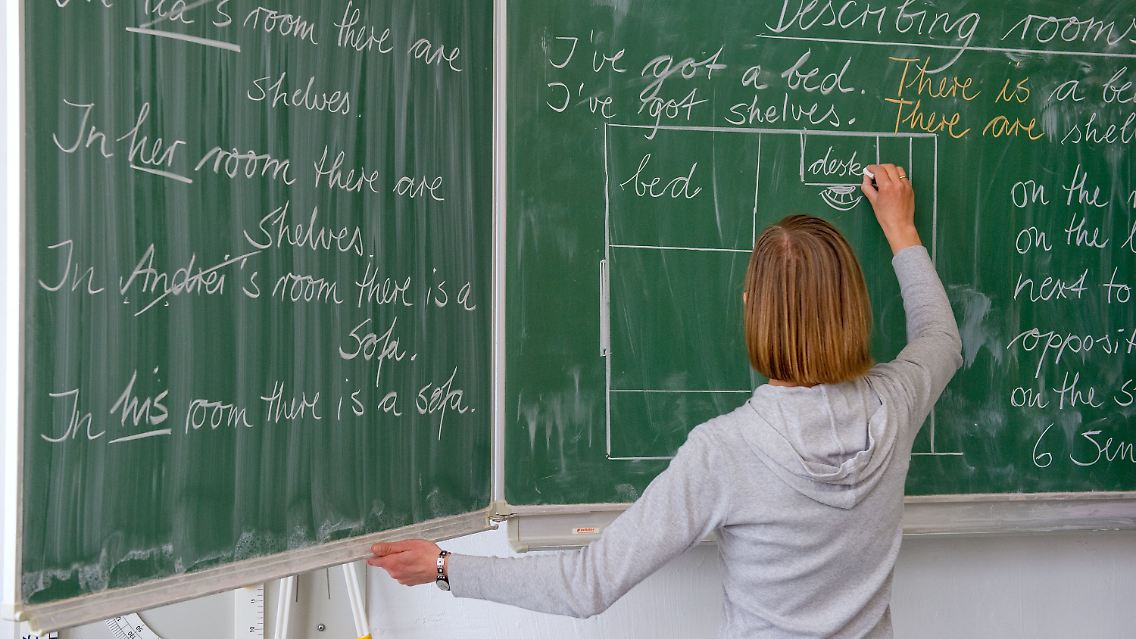 In Tea's room there are
shelves.
In her room there are
Shelves.
In Andrei's room there is a
Sofa.
In his room there is a sofa.
Describing rooms
I've got a bed. There is a be
I've got shelves. There are shel
bed
desk
on the
on the
next to
opposit
on the s
6 Sen